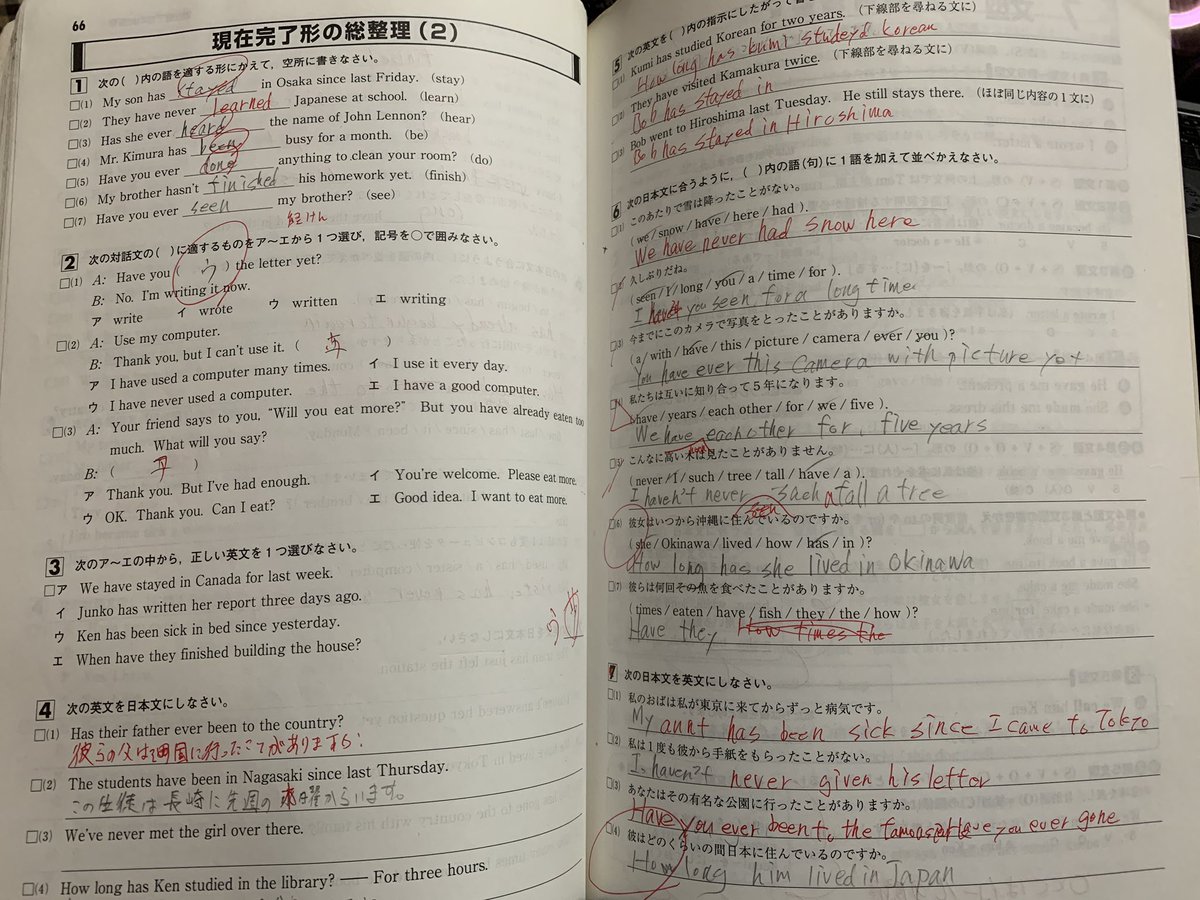 66
現在完了形の総整理(2)
1 次の( )内の語を適する形にかえて，空所に書きなさい。
□(1) My son has stayed in Osaka since last Friday. (stay)
□(2) They have never learned Japanese at school. (learn)
□(3) Has she ever heard the name of John Lennon? (hear)
□(4) Mr. Kimura has been busy for a month. (be)
□(5) Have you ever done anything to clean your room? (do)
□(6) My brother hasn't finished his homework yet. (finish)
□(7) Have you ever seen my brother? (see)
経けん
2 次の対話文の( )に適するものをア～エから1つ選び，記号を○で囲みなさい。
□(1) A: Have you ( う ) the letter yet?
B: No. I'm writing it now.
ア write イ wrote ウ written エ writing
□(2) A: Use my computer.
B: Thank you, but I can't use it. ( )
ア I have used a computer many times. イ I use it every day.
ウ I have never used a computer. エ I have a good computer.
□(3) A: Your friend says to you, "Will you eat more?" But you have already eaten too
much. What will you say?
B: ( )
ア Thank you. But I've had enough. イ You're welcome. Please eat more.
ウ OK. Thank you. Can I eat? エ Good idea. I want to eat more.
3 次のア～エの中から，正しい英文を1つ選びなさい。
□ア We have stayed in Canada for last week.
イ Junko has written her report three days ago.
ウ Ken has been sick in bed since yesterday.
エ When have they finished building the house?
う
4 次の英文を日本文にしなさい。
□(1) Has their father ever been to the country?
彼らの父は国に行ったことがありますか
□(2) The students have been in Nagasaki since last Thursday.
この生徒は長崎に先週の木曜からいます。
□(3) We've never met the girl over there.
□(4) How long has Ken studied in the library? ── For three hours.
5 次の英文を( )内の指示にしたがって
□(1) Kumi has studied Korean for two years. (下線部を尋ねる文に)
How long has kumi studeyd korean
□(2) They have visited Kamakura twice. (下線部を尋ねる文に)
Bob has stayed in
□(3) Bob went to Hiroshima last Tuesday. He still stays there. (ほぼ同じ内容の1文に)
Bob has stayed in Hiroshima
6 次の日本文に合うように，( )内の語(句)に1語を加えて並べかえなさい。
□(1) このあたりで雪は降ったことがない。
(we / snow / have / here / had ).
We have never had snow here
久しぶりだね。
(seen / I / long / you / a / time / for ).
I have you seen for a long time
□(3) 今までにこのカメラで写真をとったことがありますか。
(a / with / have / this / picture / camera / ever / you )?
You have ever this camera with picture yot
私たちは互いに知り合って5年になります。
have / years / each other / for / we / five ).
We have each other for, five years
(5) こんなに高い木は見たことがありません。
(never / I / such / tree / tall / have / a ).
I haven't never such a tall a tree
seen
□(6) 彼女はいつから沖縄に住んでいるのですか。
(she / Okinawa / lived / how / has / in )?
How long has she lived in Okinawa
□(7) 彼らは何回その魚を食べたことがありますか。
(times / eaten / have / fish / they / the / how )?
Have they How times the
7 次の日本文を英文にしなさい。
□(1) 私のおばは私が東京に来てからずっと病気です。
My aunt has been sick since I came to Tokyo
□(2) 私は1度も彼から手紙をもらったことがない。
I haven't never given his lettor
□(3) あなたはその有名な公園に行ったことがありますか。
Have you ever been to the famous you ever gone
□(4) 彼はどのくらいの間日本に住んでいるのですか。
How long him lived in Japan